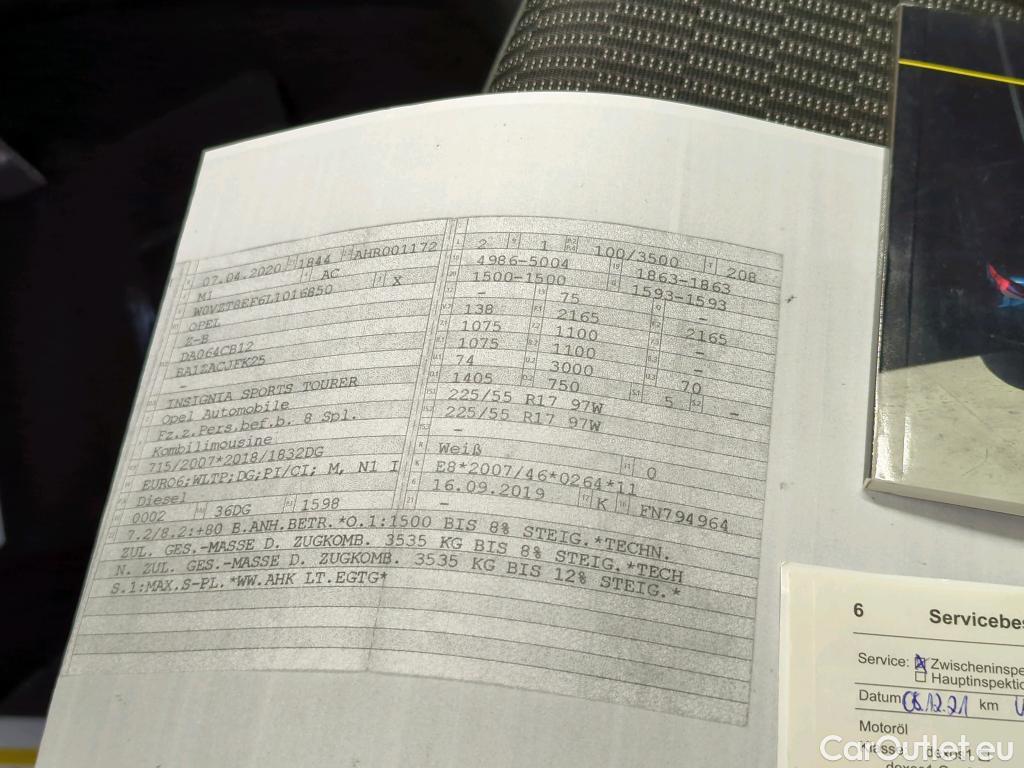 07.04.2020 1844 AHR001172
M1 AC
W0VZT8EF6L1016850 X
OPEL
Z-B
DA064CB12
BA1ZACJFK25
-
INSIGNIA SPORTS TOURER
Opel Automobile
Fz.z.Pers.bef.b. 8 Spl.
Kombilimousine
715/2007*2018/1832DG
EURO6;WLTP;DG;PI/CI; M, N1 I
Diesel
0002 36DG 1598
2 1 100/3500 208
4986-5004 1863-1863
1500-1500 1593-1593
- 75 -
138 2165 2165
1075 1100 -
1075 1100 -
74 3000 70
1405 750 5 -
225/55 R17 97W
225/55 R17 97W
-
Weiß 0
E8*2007/46*0264*11
16.09.2019 K FN794964
-
7.2/8.2:+80 B.ANH.BETR.*O.1:1500 BIS 8% STEIG.*TECHN.
ZUL. GES.-MASSE D. ZUGKOMB. 3535 KG BIS 8% STEIG.*TECH
N. ZUL. GES.-MASSE D. ZUGKOMB. 3535 KG BIS 12% STEIG.*
S.1:MAX.S-PL.*WW.AHK LT.EGTG*
6 Servicebes
Service: Zwischeninspe
Hauptinspektio
Datum 08.12.21 km
Motoröl
Klasse dexos1
CarOutlet.eu